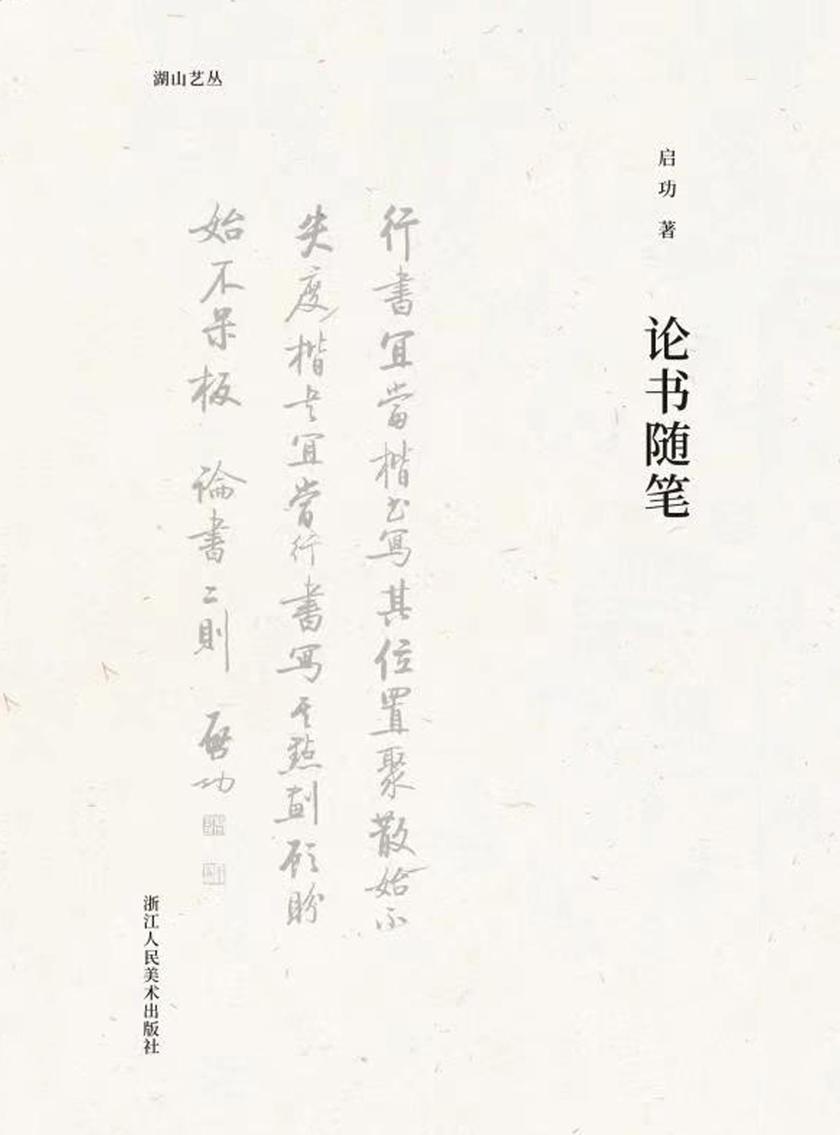 湖山艺丛
启功 著
论书随笔
行書宜當楷书寫其位置聚散始不
失度楷书宜當行書寫其點劃顾盼
始不呆板 論書二則 啟功
浙江人民美术出版社